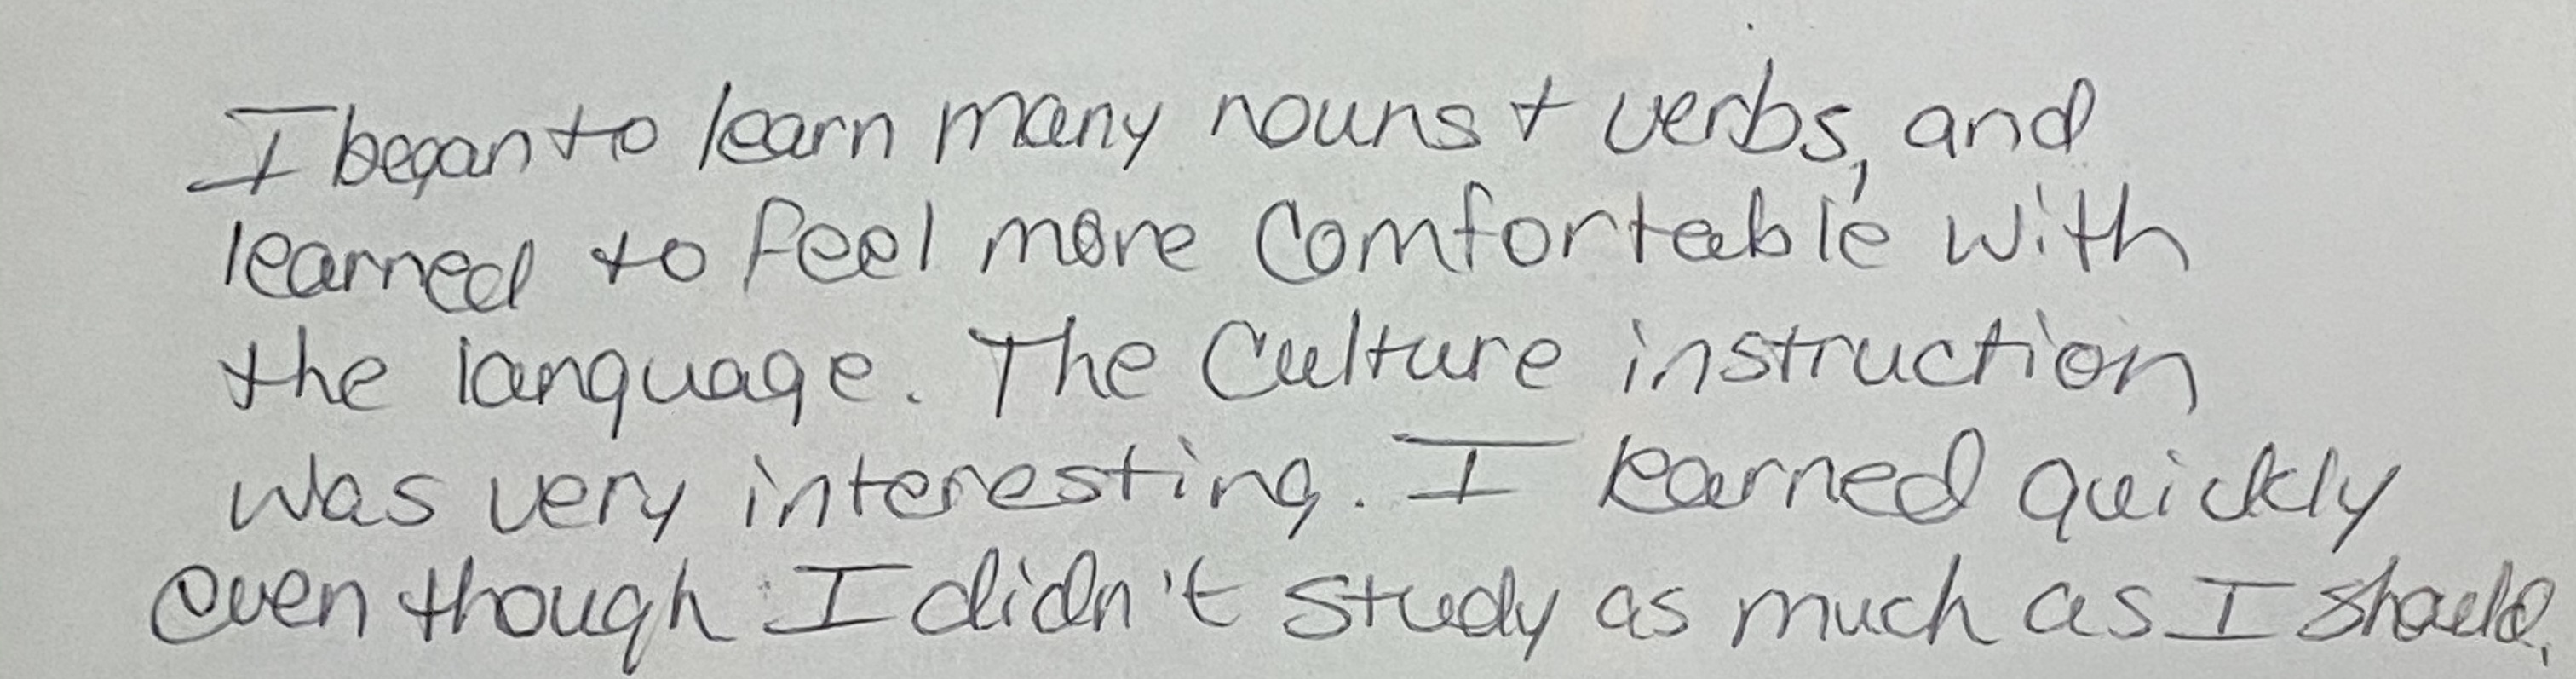 I began to learn many nouns + verbs, and
learned to feel more comfortable with
the language. The Culture instruction
was very interesting. I learned quickly
even though I didn't study as much as I should.